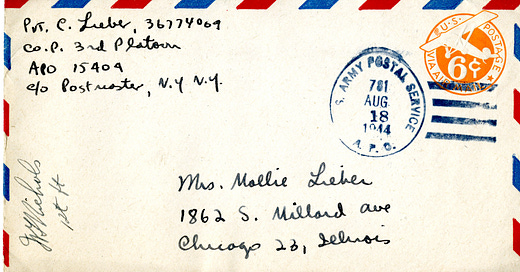 Pvt. C. Lieber, 36774009
Co. P. 3rd Platoon
APO 15404
c/o Postmaster, N.Y. N.Y.
U.S. POSTAGE
VIA AIR MAIL
6¢
U.S. ARMY POSTAL SERVICE
781
AUG.
18
1944
A. P. O.
Mrs. Mollie Lieber
1862 S. Millard ave
Chicago 23, Illinois
Nichols